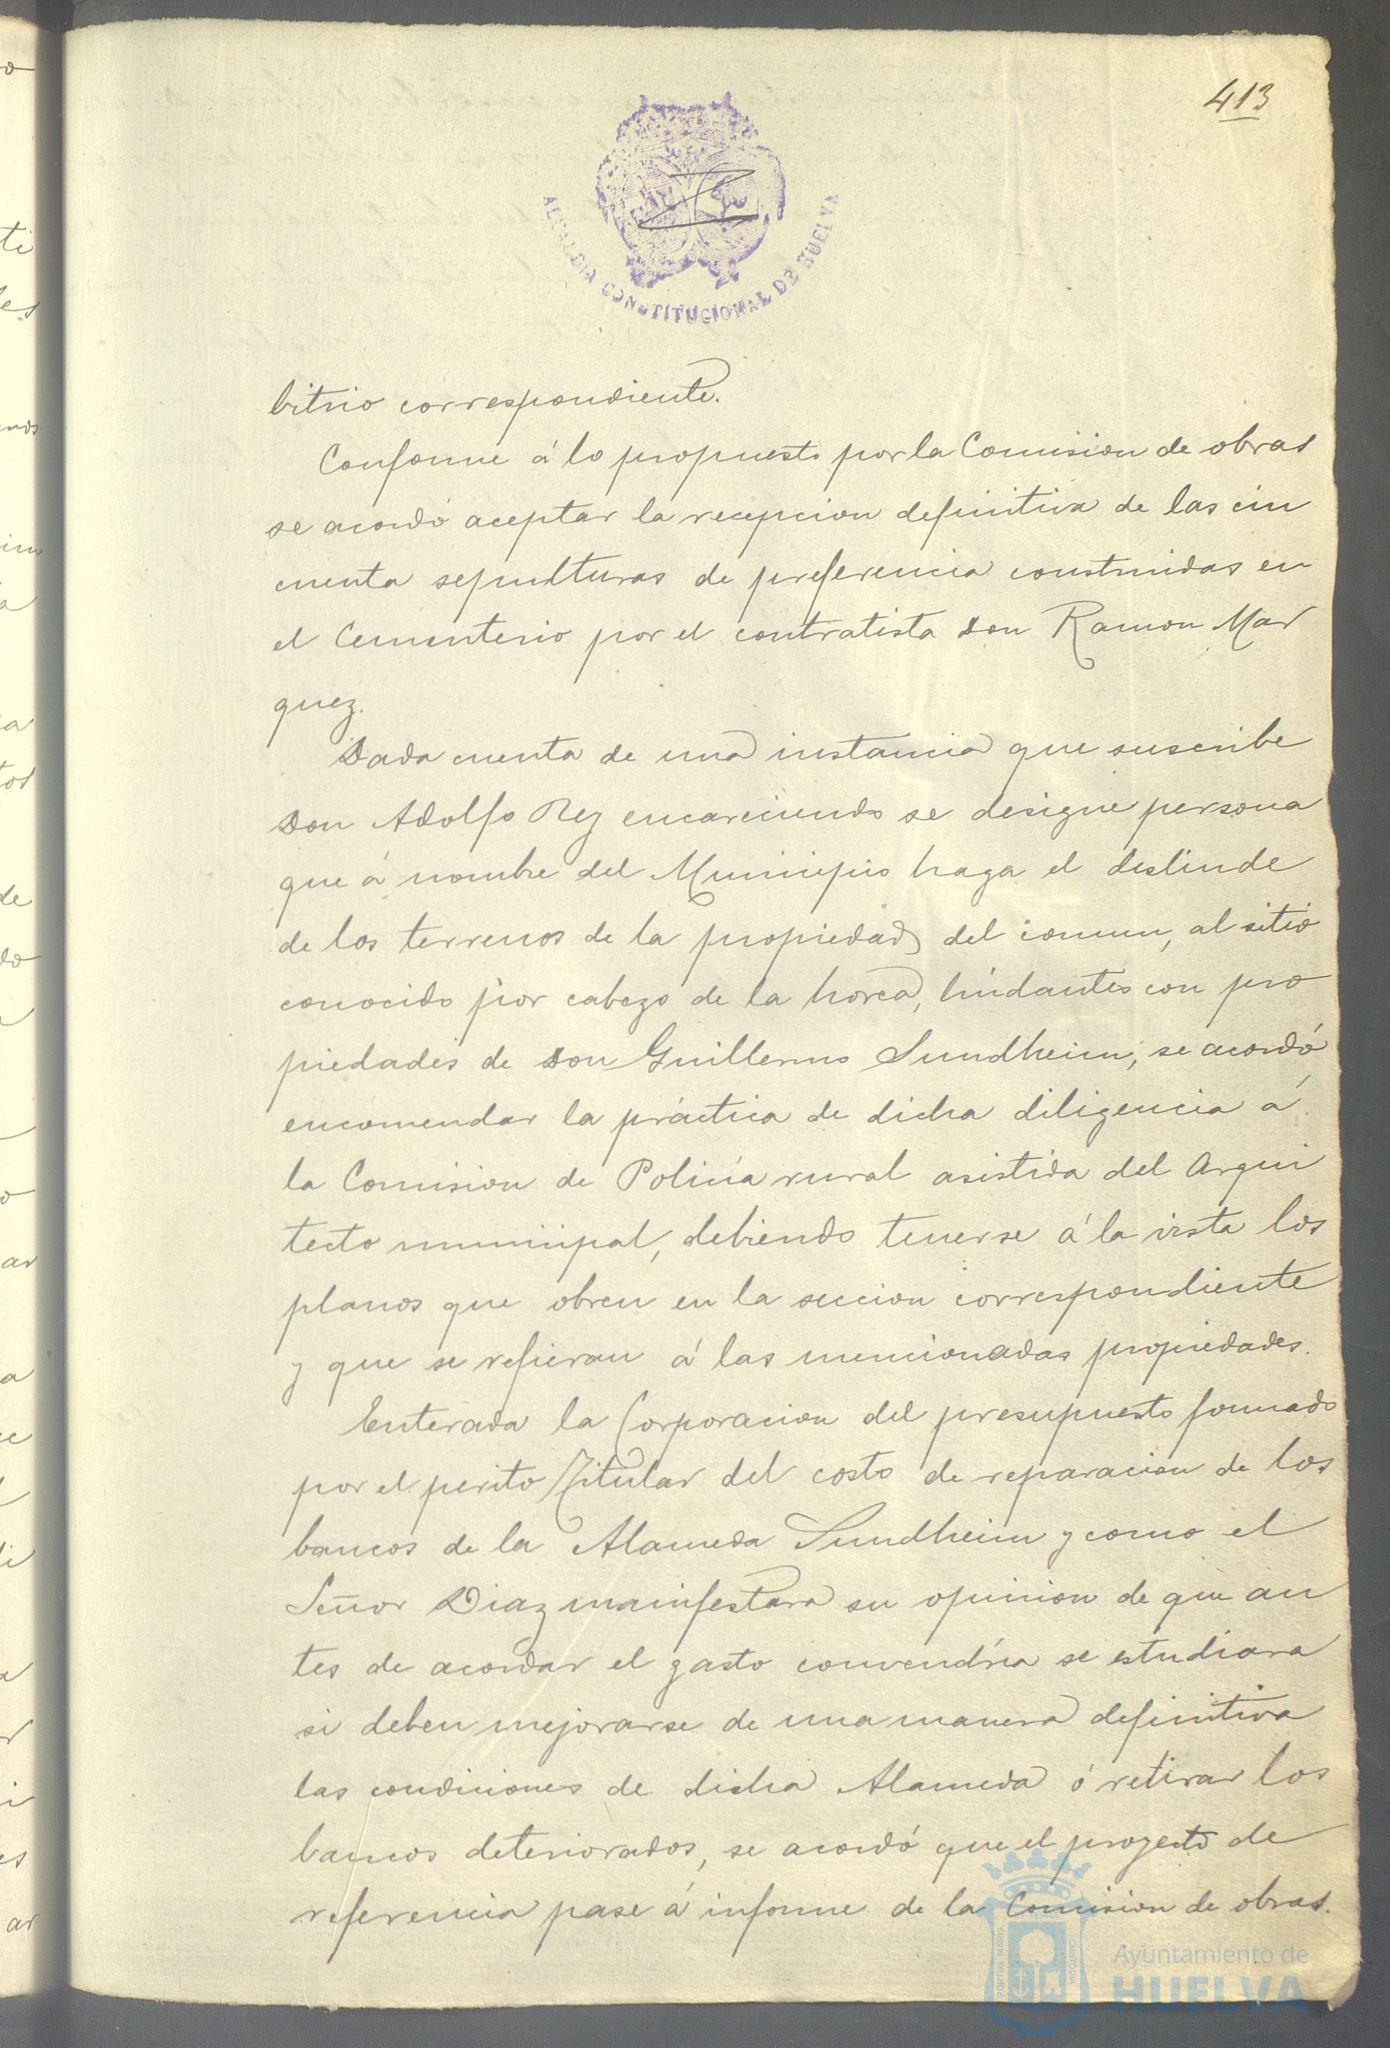 413
ALCALDIA CONSTITUCIONAL DE HUELVA
bitrio correspondiente.
Conforme á lo propuesto por la Comision de obras
se acordó aceptar la recepcion definitiva de las cin
cuenta sepulturas de preferencia construidas en
el Cementerio por el contratista Don Ramon Mar
quez.
Dada cuenta de una instancia que suscribe
Don Adolfo Rey encareciendo se designe persona
que á nombre del Municipio haga el deslinde
de los terrenos de la propiedad del comun, al sitio
conocido por cabezo de la horca, lindantes con pro
piedades de Don Guillermo Sundheim, se acordó
encomendar la práctica de dicha diligencia á
la Comision de Policía rural asistida del Arqui
tecto municipal, debiendo tenerse á la vista los
planos que obren en la seccion correspondiente
y que se refieran á las mencionadas propiedades.
Enterada la Corporacion del presupuesto formado
por el perito Titular del costo de reparacion de los
bancos de la Alameda Sundheim y como el
Señor Diaz manifestara su opinion de que an
tes de acordar el gasto convendría se estudiara
si deben mejorarse de una manera definitiva
las condiciones de dicha Alameda ó retirar los
bancos deteriorados, se acordó que el proyecto de
referencia pase á informe de la Comision de obras.
Ayuntamiento de
HUELVA